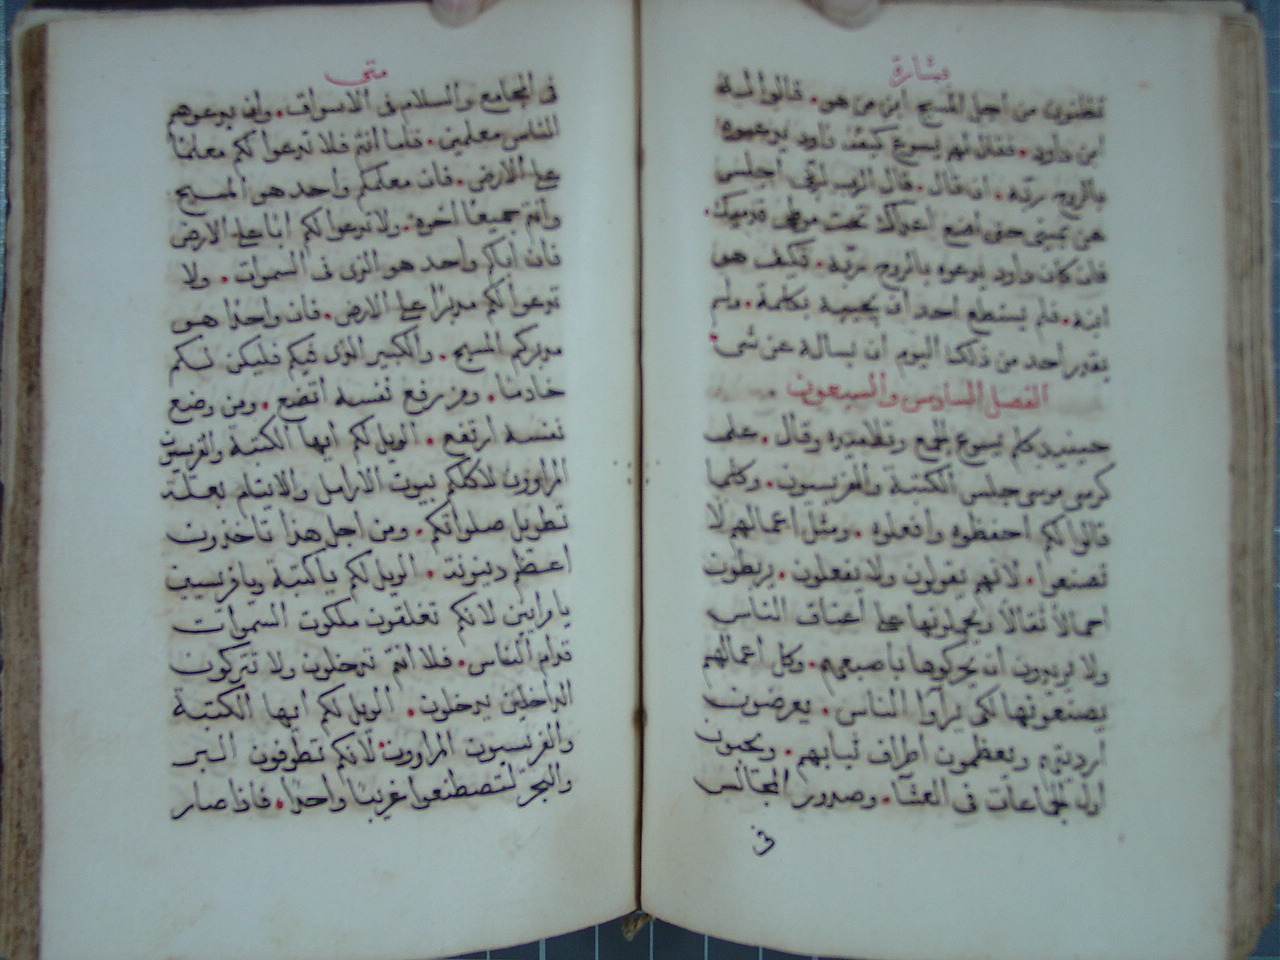 بشارة
تظنون من اجل المسيح ابن من هو. قالوا له
ابن داود. فقال لهم يسوع كيف داود يدعوه
بالروح ربّه. اذ قال. قال الرب لربي اجلس
عن يميني حتى أضع اعداك تحت موطى قدميك.
فان كان داود يدعوه بالروح ربّه. فكيف هو
ابنه. فلم يستطع احد أن يجيبه بكلمة. ولم
يقدر أحد من ذلك اليوم أن يساله عن شى.
الفصل السادس والسبعون
حينيد كلم يسوع الجمع وتلاميذه وقال. على
كرسى موسى جلس الكتبة والفريسيون. وكلما
قالوا لكم احفظوه وافعلوه. ومثل اعمالهم لا
تصنعوا. لانهم يقولون ولا يفعلون. يربطون
احمالاً ثقالاً ويحملونها على اعناق الناس
ولا يريدون أن يحركوها باصبعهم. وكل اعمالهم
يصنعونها لكى يرآوا الناس. يعرضون
ارديتهم ويعظمون أطراف ثيابهم. ويحبون
اول الجماعات فى العشا. وصدور المجالس
فى
متى
فى المجامع والسلام فى الاسواق. وان يدعوهم
الناس معلمين. فاما انتم فلا تدعوا لكم معلمًا
على الارض. فان معلمكم واحد هو المسيح
وانتم جميعًا اخوه. ولا تدعوا لكم ابًا على الارض
فان اباكم واحد هو الذى فى السموات. ولا
تدعوا لكم مدبرًا على الارض. فان واحدًا هو
مدبركم المسيح. والكبير الذى فيكم فليكن لكم
خادمًا. ومن رفع نفسه اتضع. ومن وضع
نفسه ارتفع. الويل لكم ايها الكتبة والفريسيون
المراوون لاكلكم بيوت الارامل والايتام بعلة
تطويل صلواتكم. ومن اجل هذا تاخذون
اعظم دينونة. الويل لكم ياكتبة ويافريسيين
يا مرايين لانكم تغلقون ملكوت السموات
قدام الناس. فلا انتم تدخلون ولا تتركون
الداخلين يدخلون. الويل لكم ايها الكتبة
والفريسيون المراوون. لانكم تطوفون البر
والبحر لتصطنعوا غريبًا واحدًا. فاذا صار